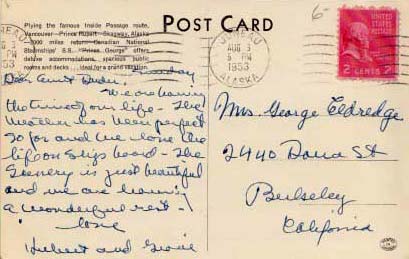 POST CARD
Flying the famous Inside Passage route,
Vancouver - Prince Rupert - Skagway, Alaska
2000 miles return, Canadian National
Steamships' S.S. "Prince George" offers
deluxe accommodations, spacious public
rooms and decks . . . ideal for a grand vacation.
JUNEAU
AUG 3
5 PM
1953
ALASKA
1953
UNITED STATES
POSTAGE
2 CENTS 2
6-
Sunday
Dear Aunt
We are having
the time of our life - The
weather has been perfect
so far and we love the
life on ship board - The
Scenery is just beautiful
and we are having
a wonderful rest -
love
Hubert and
Mrs. George Eldredge
2440 Dana St
Berkeley
California